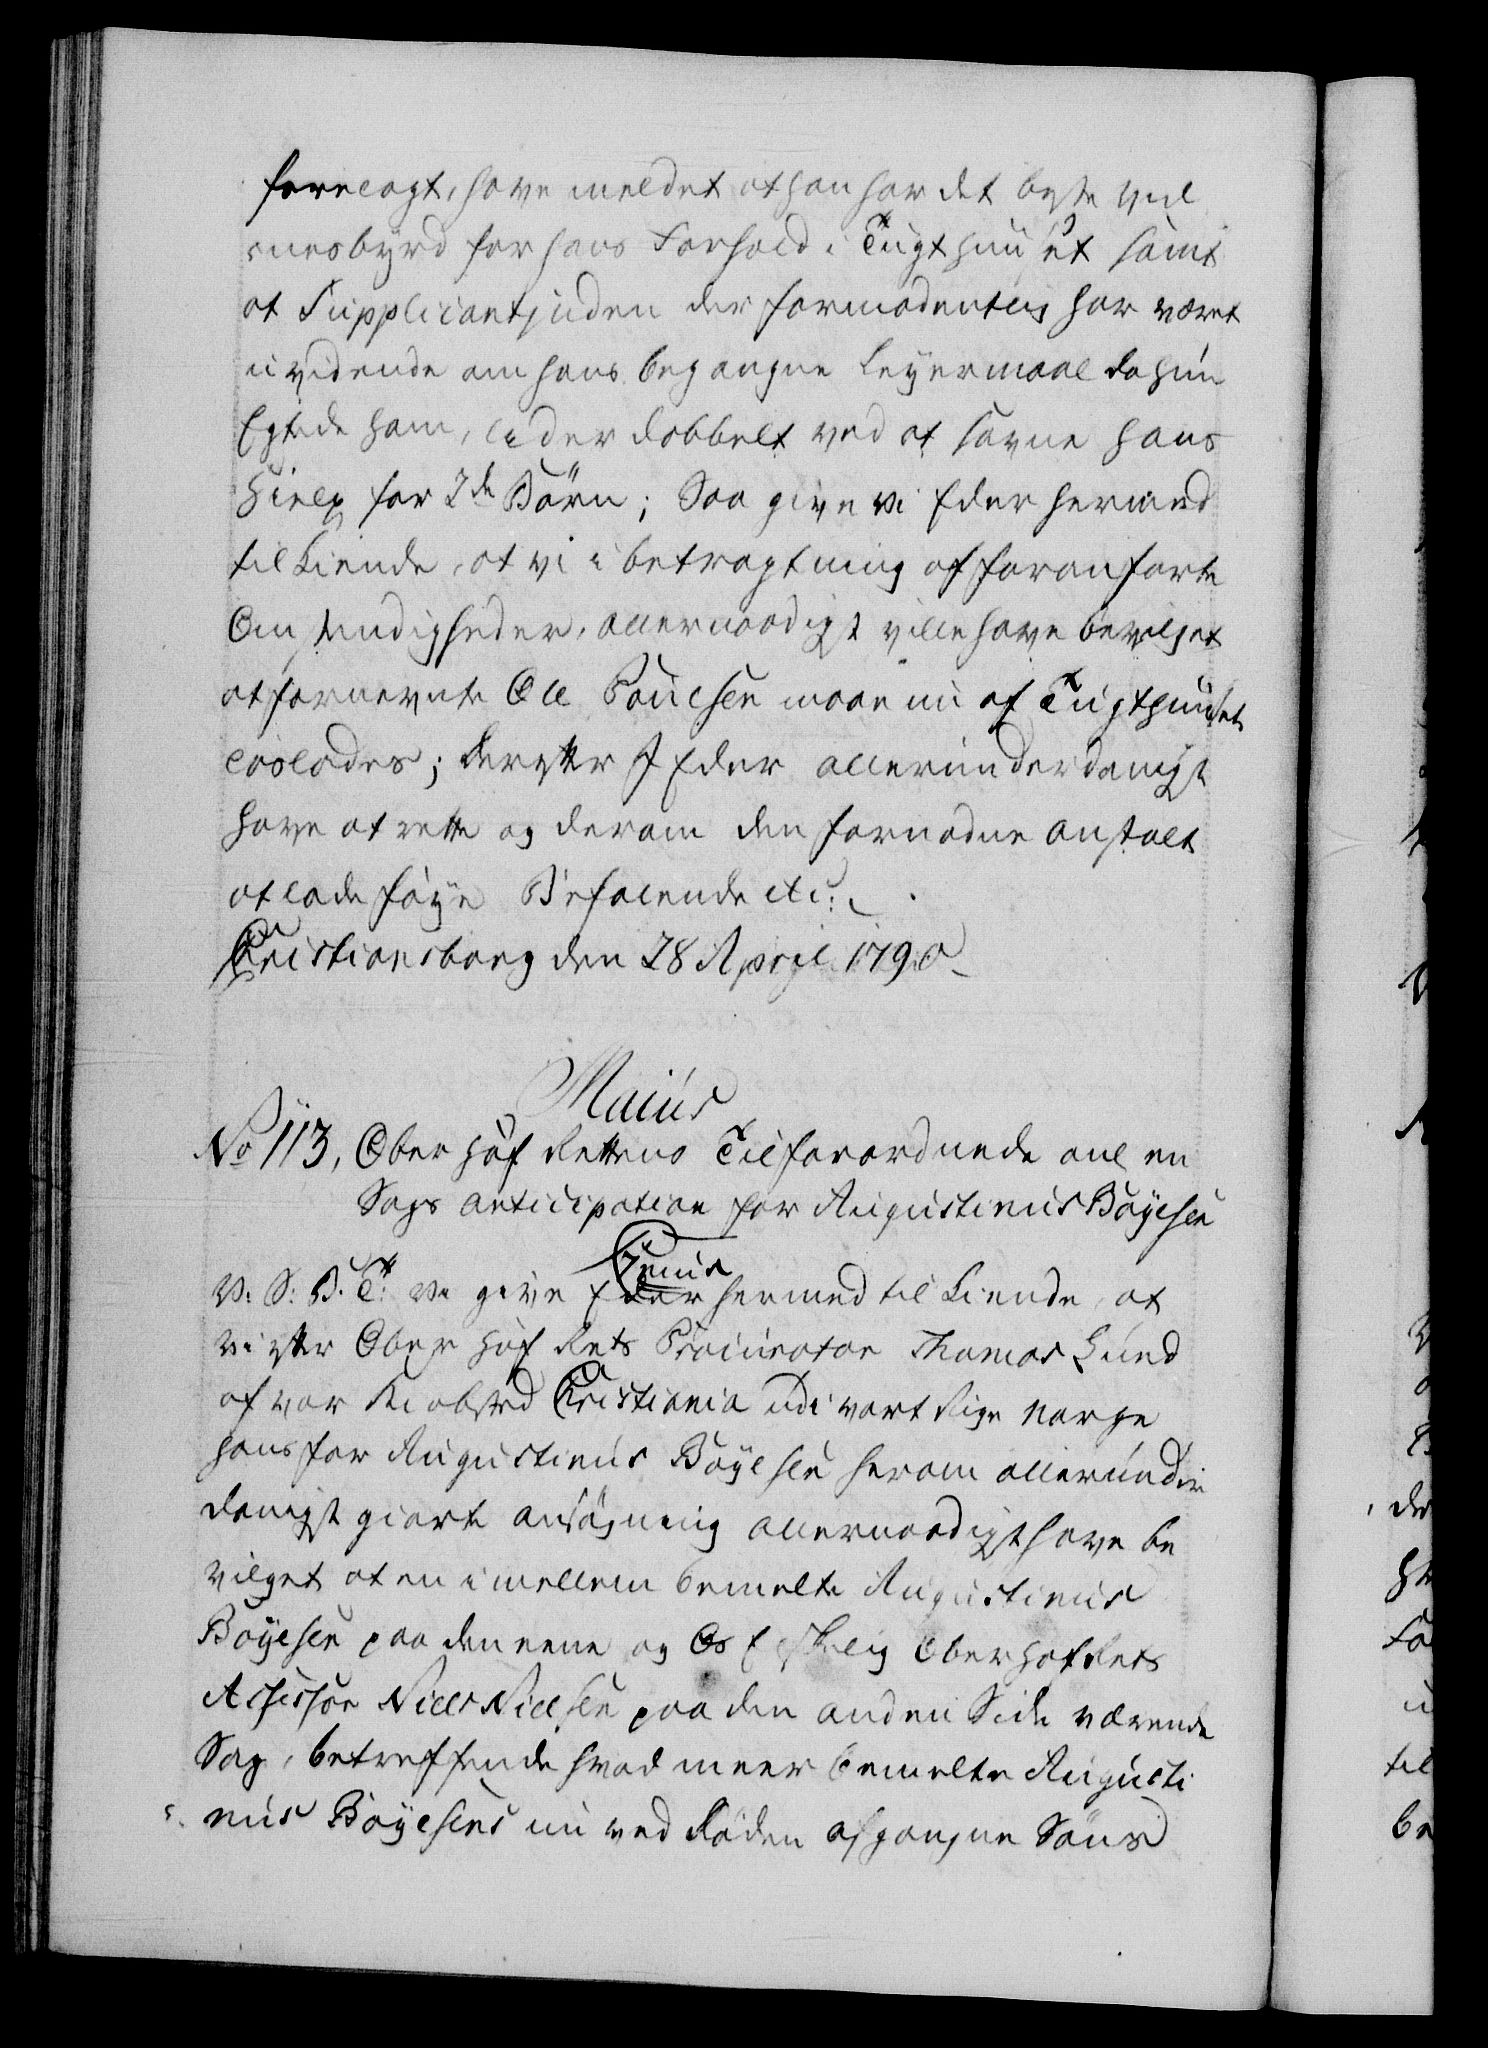 forelagt, have meldet at han har det beste Vid
nesbyrd for hans Forhold i Tugthuuset samt
at Supplicantinden der formodentlig har været
uvidende om hans begangne Leyermaal da hun
Egtede ham, lider dobbelt ved at savne hans
Hielp for 2de Börn; Saa give vi Eder hermed
tilkiende, at vi i betragtning af foranførte
Omstendigheder, allernaadigst ville have bevilget
at fornevnte Ole Poulsen maae nu af Tugthuuset
løslades; derefter I Eder allerunderdanigst
have at rette og derom den fornødne Anstalt
at lade føye Befalende etc:
Christiansborg den 28 April 1790
Maius
No 113, Ober Hof Rettens Tilforordnede anl en
Sags anticipation for Augustinus Böyesen
V: S: B: T: Vi give Eder hermed til kiende, at
vi efter Ober Hof Rets Procurator Thomas Lund
af vor Kiøbsted Christiania udi vort Rige Norge
hans for Augustinus Böyesen herom allerunder
danigst giorte ansøgning allernaadigst have be
vilget at en imellem bemelte Augustinus
Böyesen paa den eene og Os Elskelig Oberhofrets
Assessor Niels Nielsen paa den anden Side værende
Sag, betreffende hvad meer bemelte Augusti
nus Böyesens nu ved Døden afgangne Søns